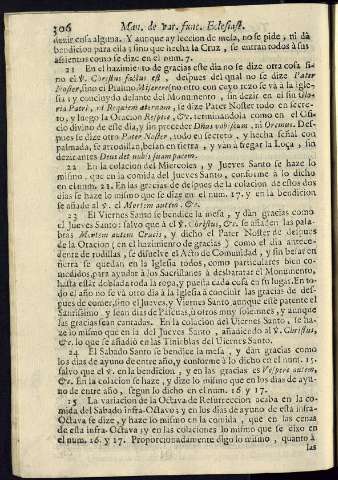 306 Man. de var. func. Eclesiast.
dezir cosa alguna. Y aunque ay leccion de mesa, no se pide, ni dà
bendicion para ella; sino que hecha la Cruz, se entran todos à sus
assientos como se dize en el num. 7.
21 En el hazimiento de gracias este dia no se dize otra cosa si-
no el ℣. Christus factus est, despues del qual no se dize Pater
Noster, sino el Psalmo Miserere (no otro con cuyo rezo se và à la Igle-
sia) y concluydo delante del Monumento, sin dezir en el fin Glo-
ria Patri, ni Requiem æternam, se dize Pater Noster todo en secre-
to, y luego la Oracion Respice, &c. terminandola como en el Ofi-
cio divino de este dia, y sin preceder Dñus vobiscum, ni Oremus. Des-
pues se dize otro Pater Noster, todo en secreto, y hecha señal con
palmada, se arrodillan, besan en tierra, y van à fregar la Loça, sin
dezir antes Deus det nobis suam pacem.
22 En la colacion del Miercoles, y Jueves Santo se haze lo
mismo, que en la comida del Jueves Santo, conforme à lo dicho
en el num. 21. En las gracias de despues de la colacion de estos dos
dias se haze lo mismo que se dize en el num. 17. y en la bendicion
se añade al ℣. el Mortem autem, &c.
23 El Viernes Santo se bendice la mesa, y dàn gracias como
el Jueves Santo; salvo que à el ℣. Christus, &c. se añaden las pala-
bras Mortem autem Crucis, y dicho el Pater Noster de despues
de la Oracion (en el hazimiento de gracias) como el dia antece-
dente de rodillas, se disuelve el Acto de Comunidad, y sin besar en
tierra se quedan en la Iglesia todos, como particulares bien co-
medidos, para ayudar à los Sacristanes à desbaratar el Monumento,
hasta estàr doblada toda la ropa, y puesta cada cosa en su lugar. En to-
do el año no se và otro dia à la Iglesia à concluir las gracias de des-
pues de comer, sino el Jueves, y Viernes Santo aunque estè patente el
Santissimo, y sean dias de Pascuas, ù otros muy solemnes, y aunque
las gracias sean cantadas. En la colacion del Viernes Santo, se ha-
ze lo mismo que en la del Jueves Santo, añadiendo al ℣. Christus,
&c. lo que se añadiò en las Tinieblas del Viernes Santo.
24 El Sabado Santo se bendice la mesa, y dàn gracias como
los dias de ayuno de entre año, y conforme à lo dicho en el num. 15.
salvo que el ℣. en la bendicion, y en las gracias es Vespere autem,
&c. En la colacion se haze, y dize lo mismo que en los dias de ayu-
no de entre año, segun lo dicho en el num. 16 y 17.
25 La variacion de la Octava de Resurreccion acaba en la co-
mida del Sabado infra-Octavo; y en los dias de ayuno de esta infra-
Octava se dize, y haze lo mismo en la comida, que en las cenas
de esta infra-Octava; y en las colaciones lo mismo que se dixo en
el num. 16. y 17. Proporcionadamente digo lo mismo, quanto à
las